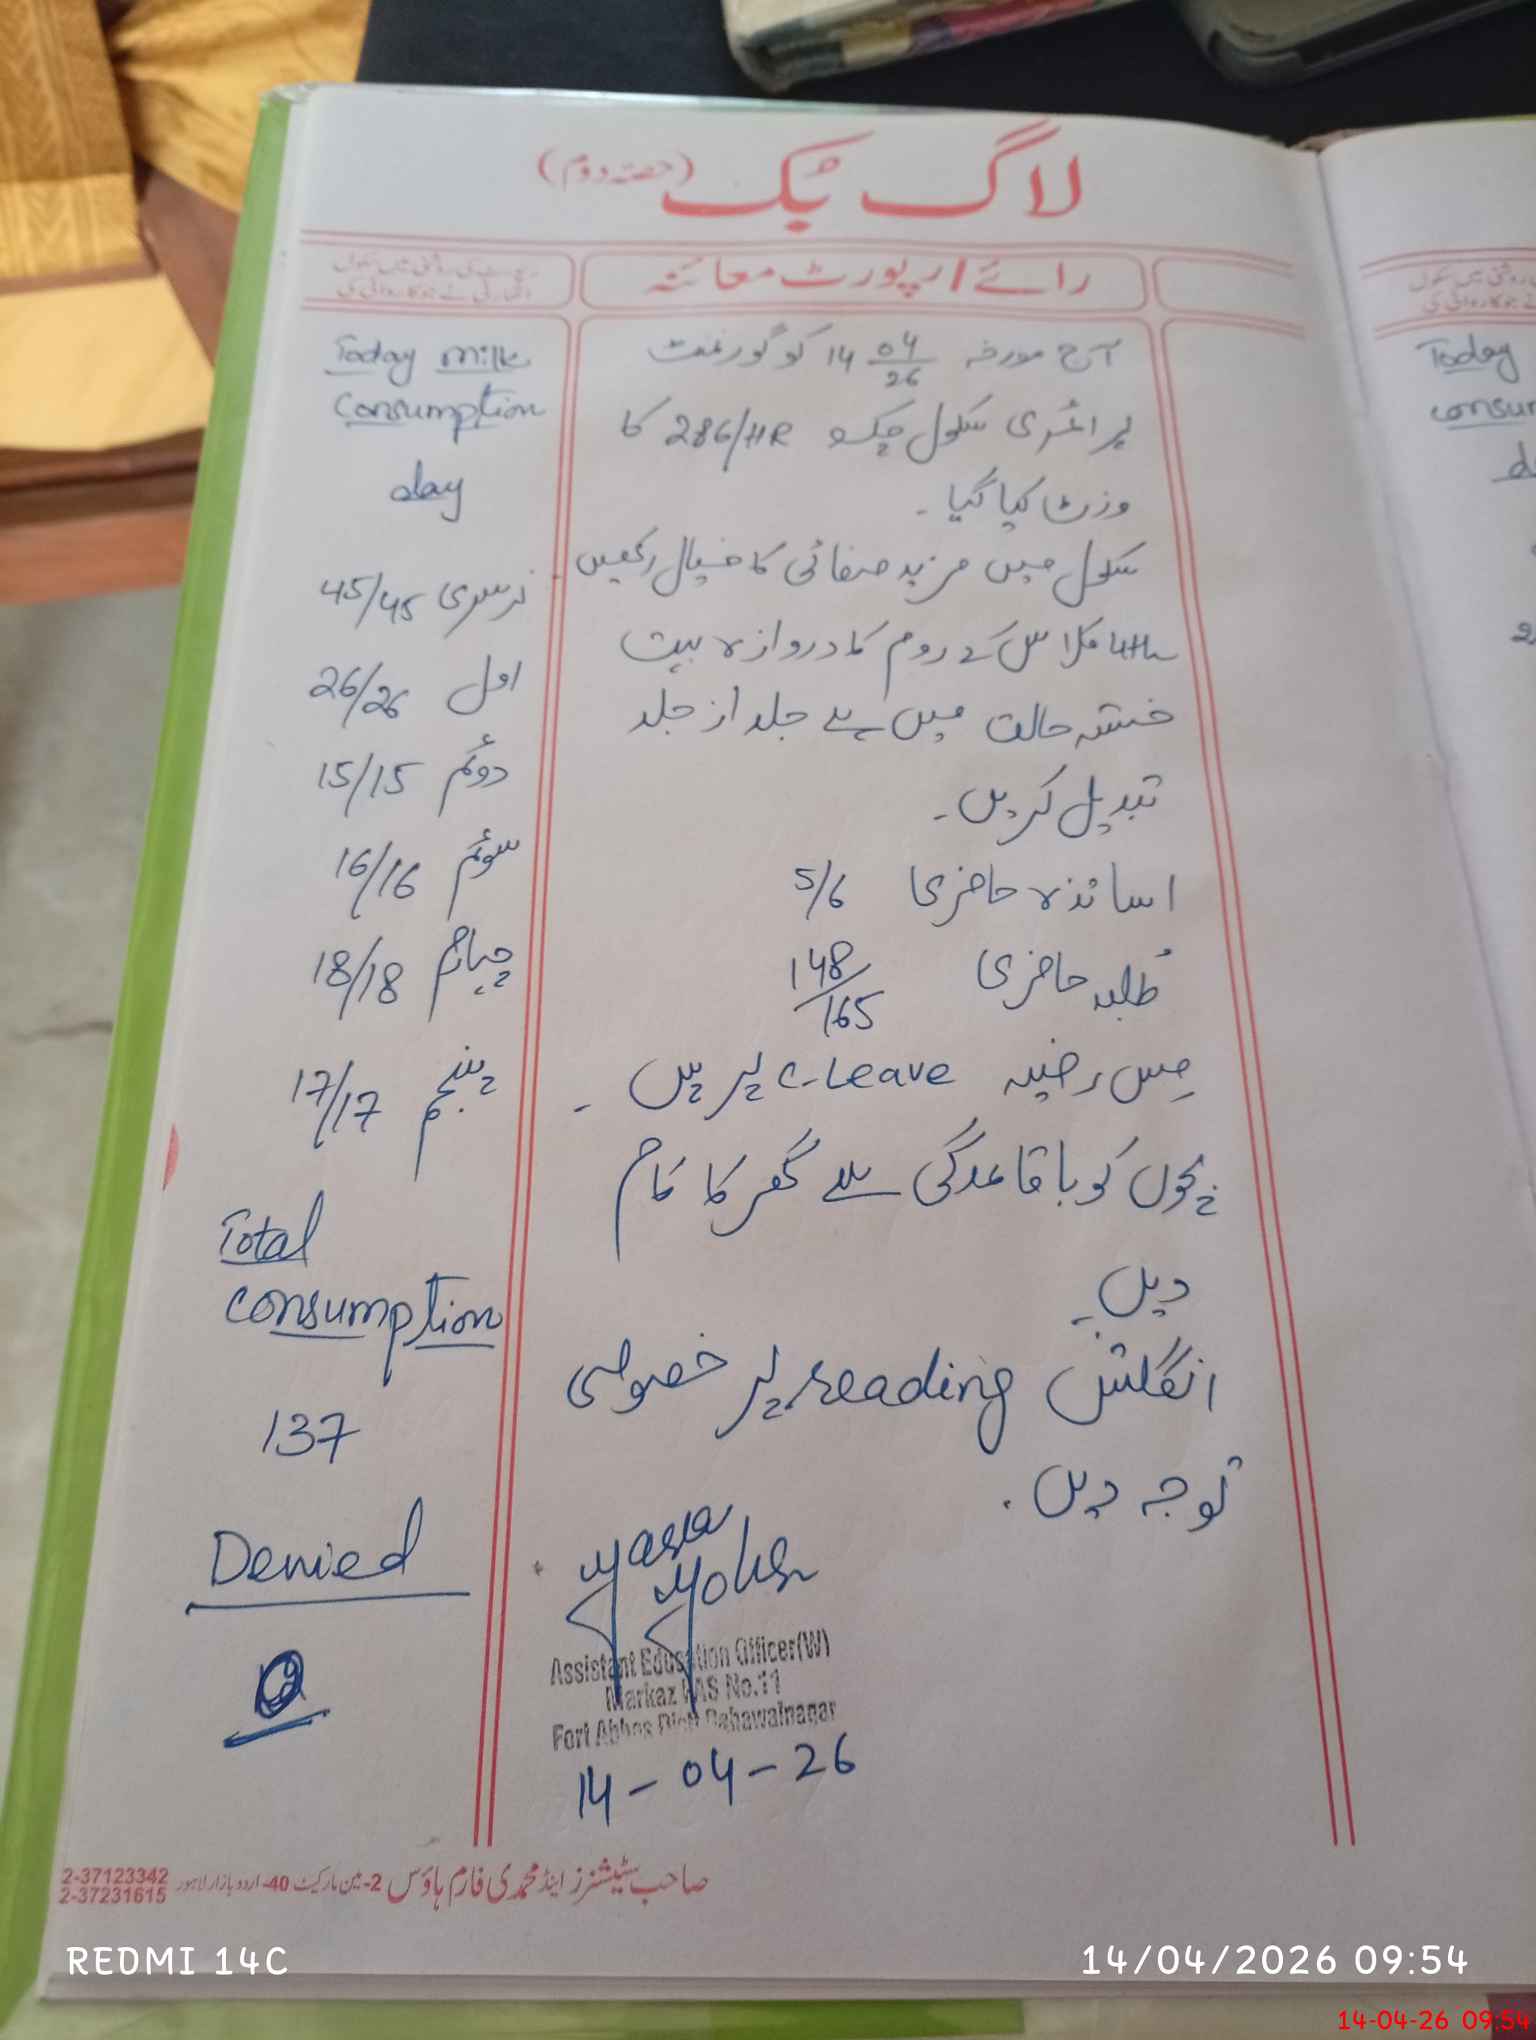 لاگ بُک (حصہ دوم)
رائے / رپورٹ معائنہ
آج مورخہ 14 04/26 کو گورنمنٹ
پرائمری سکول چک 286/HR کا
وزٹ کیا گیا ۔
سکول میں مزید صفائی کا خیال رکھیں ۔
4th کلاس کے روم کا دروازہ بہت
خستہ حالت میں ہے جلد از جلد
تبدیل کریں ۔
اساتذہ حاضری 5/6
طلبہ حاضری 148/165
مِس رضیہ C-Leave پر ہیں ۔
بچوں کو باقاعدگی سے گھر کا کام
دیں ۔
انگلش reading پر خصوصی
توجہ دیں ۔
Assistant Education Officer(W)
Markaz No.11
Fort Abbas Distt Bahawalnagar
14-04-26
کی روشنی میں سکول
نے جو کاروائی کی
Today Milk
Consumption
day
نرسری 45/45
اول 26/26
دوئم 15/15
سوئم 16/16
چہارم 18/18
پنجم 17/17
Total
Consumption
137
Denied
صاحب سٹیشنرز اینڈ محمدی فارم ہاؤس 2-مین مارکیٹ 40-اردو بازار لاہور
2-37123342
2-37231615
روشنی میں سکول
نے جو کاروائی کی
Today
REDMI 14C
14/04/2026 09:54
14-04-26 09:54